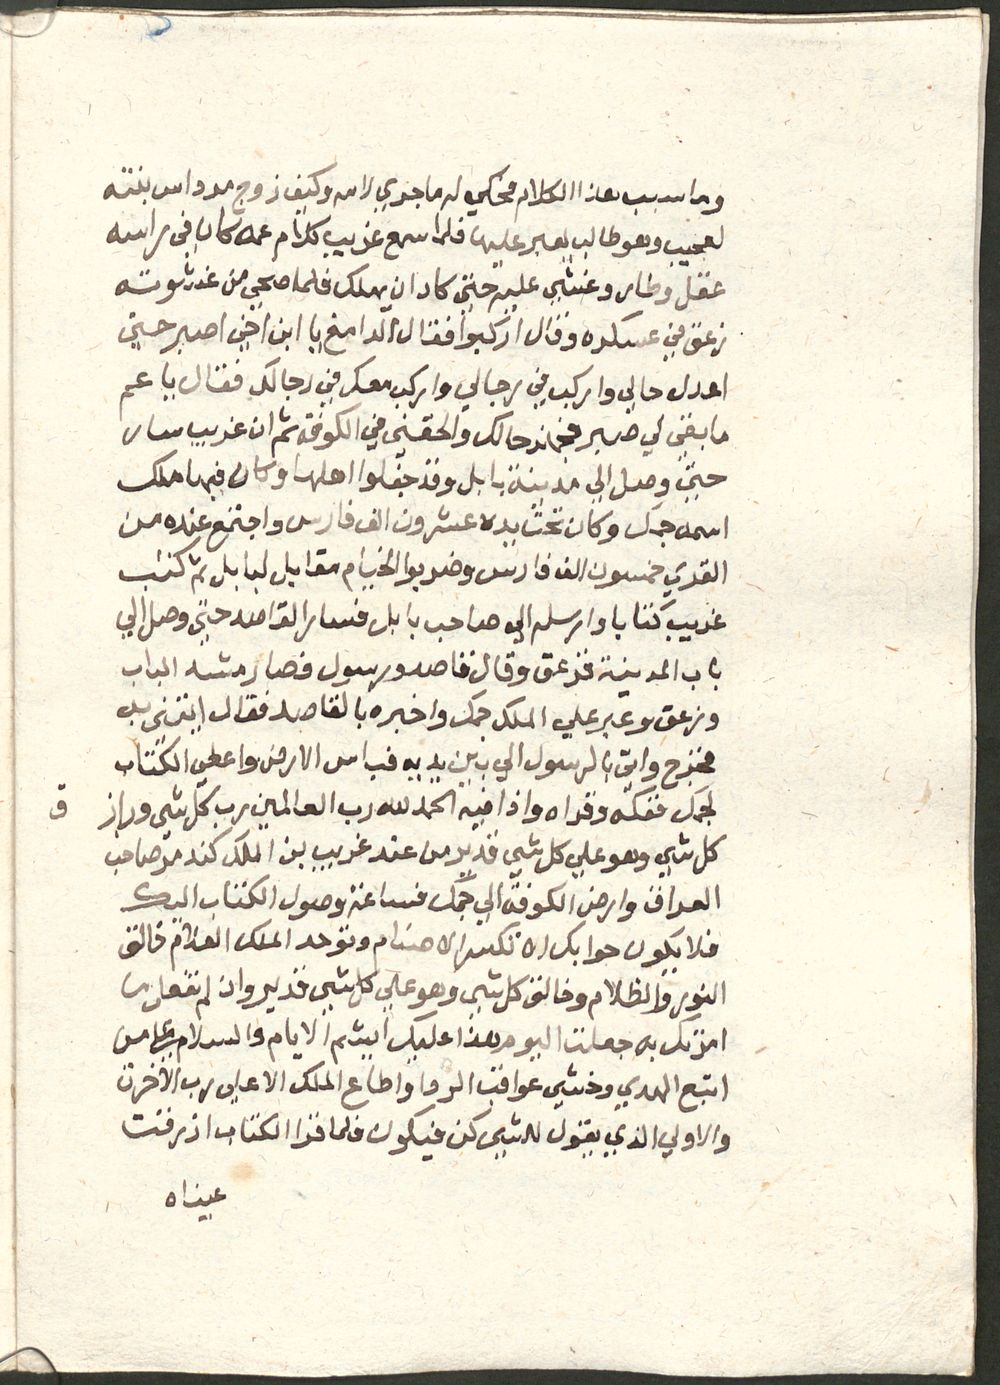 وما سبب هذا الكلام فحكي له ما جري لامه وكيف زوج مرداس بنته
لعجيب وهو طالب يعبر عليها فلما سمع غريب كلام عمه كان في راسه
عقل وطار وغشي عليه حتي كاد ان يهلك فلما صحي من غدشوته
زعق في عسكره وقال اركبوا فقال الدامغ يا ابن اخي اصبر حتي
اعدل حالي واركب في رجالي واركب معك في رجالك فقال يا عم
ما بقي لي صبر فجهز حالك والحقني في الكوفة ثم ان غريب سار
حتي وصل الي مدينة بابل وقد جفلوا اهلها وكان فيها ملك
اسمه جمك وكان تحت يده عشرون الف فارس واجتمع عنده من
القري خمسون الف فارس وضربوا الخيام مقابل لبابل ثم كتب
غريب كتابا وارسله الي صاحب بابل فسار القاصد حتي وصل الي
باب المدينة فزعق وقال قاصد ورسول فصار مشد الباب
وزعق وعبر علي الملك جمك واخبره بالقاصد فقال ايتني به
فخرج واتي بالرسول الي بين يديه فباس الارض واعطي الكتاب
لجمك ففكه وقراه واذا فيه الحمد لله رب العالمين رب كل شي وراز
ق
كل شي وهو علي كل شي قدير من عند غريب بن الملك كندمر صاحب
العراق وارض الكوفة الي جمك فساعة وصول الكتاب اليك
فلا يكون جوابك الا تكسر الاصنام وتوحد الملك العلام خالق
النور والظلام وخالق كل شي وهو علي كل شي قدير وان لم تفعل ما
امرتك به جعلت اليوم هذا عليك ايشم الايام والسلام علي من
اتبع الهدي وخشي عواقب الردا واطاع الملك الاعلي رب الاخرة
والاولي الذي يقول للشي كن فيكون فلما قرا الكتاب ازرقت
عيناه